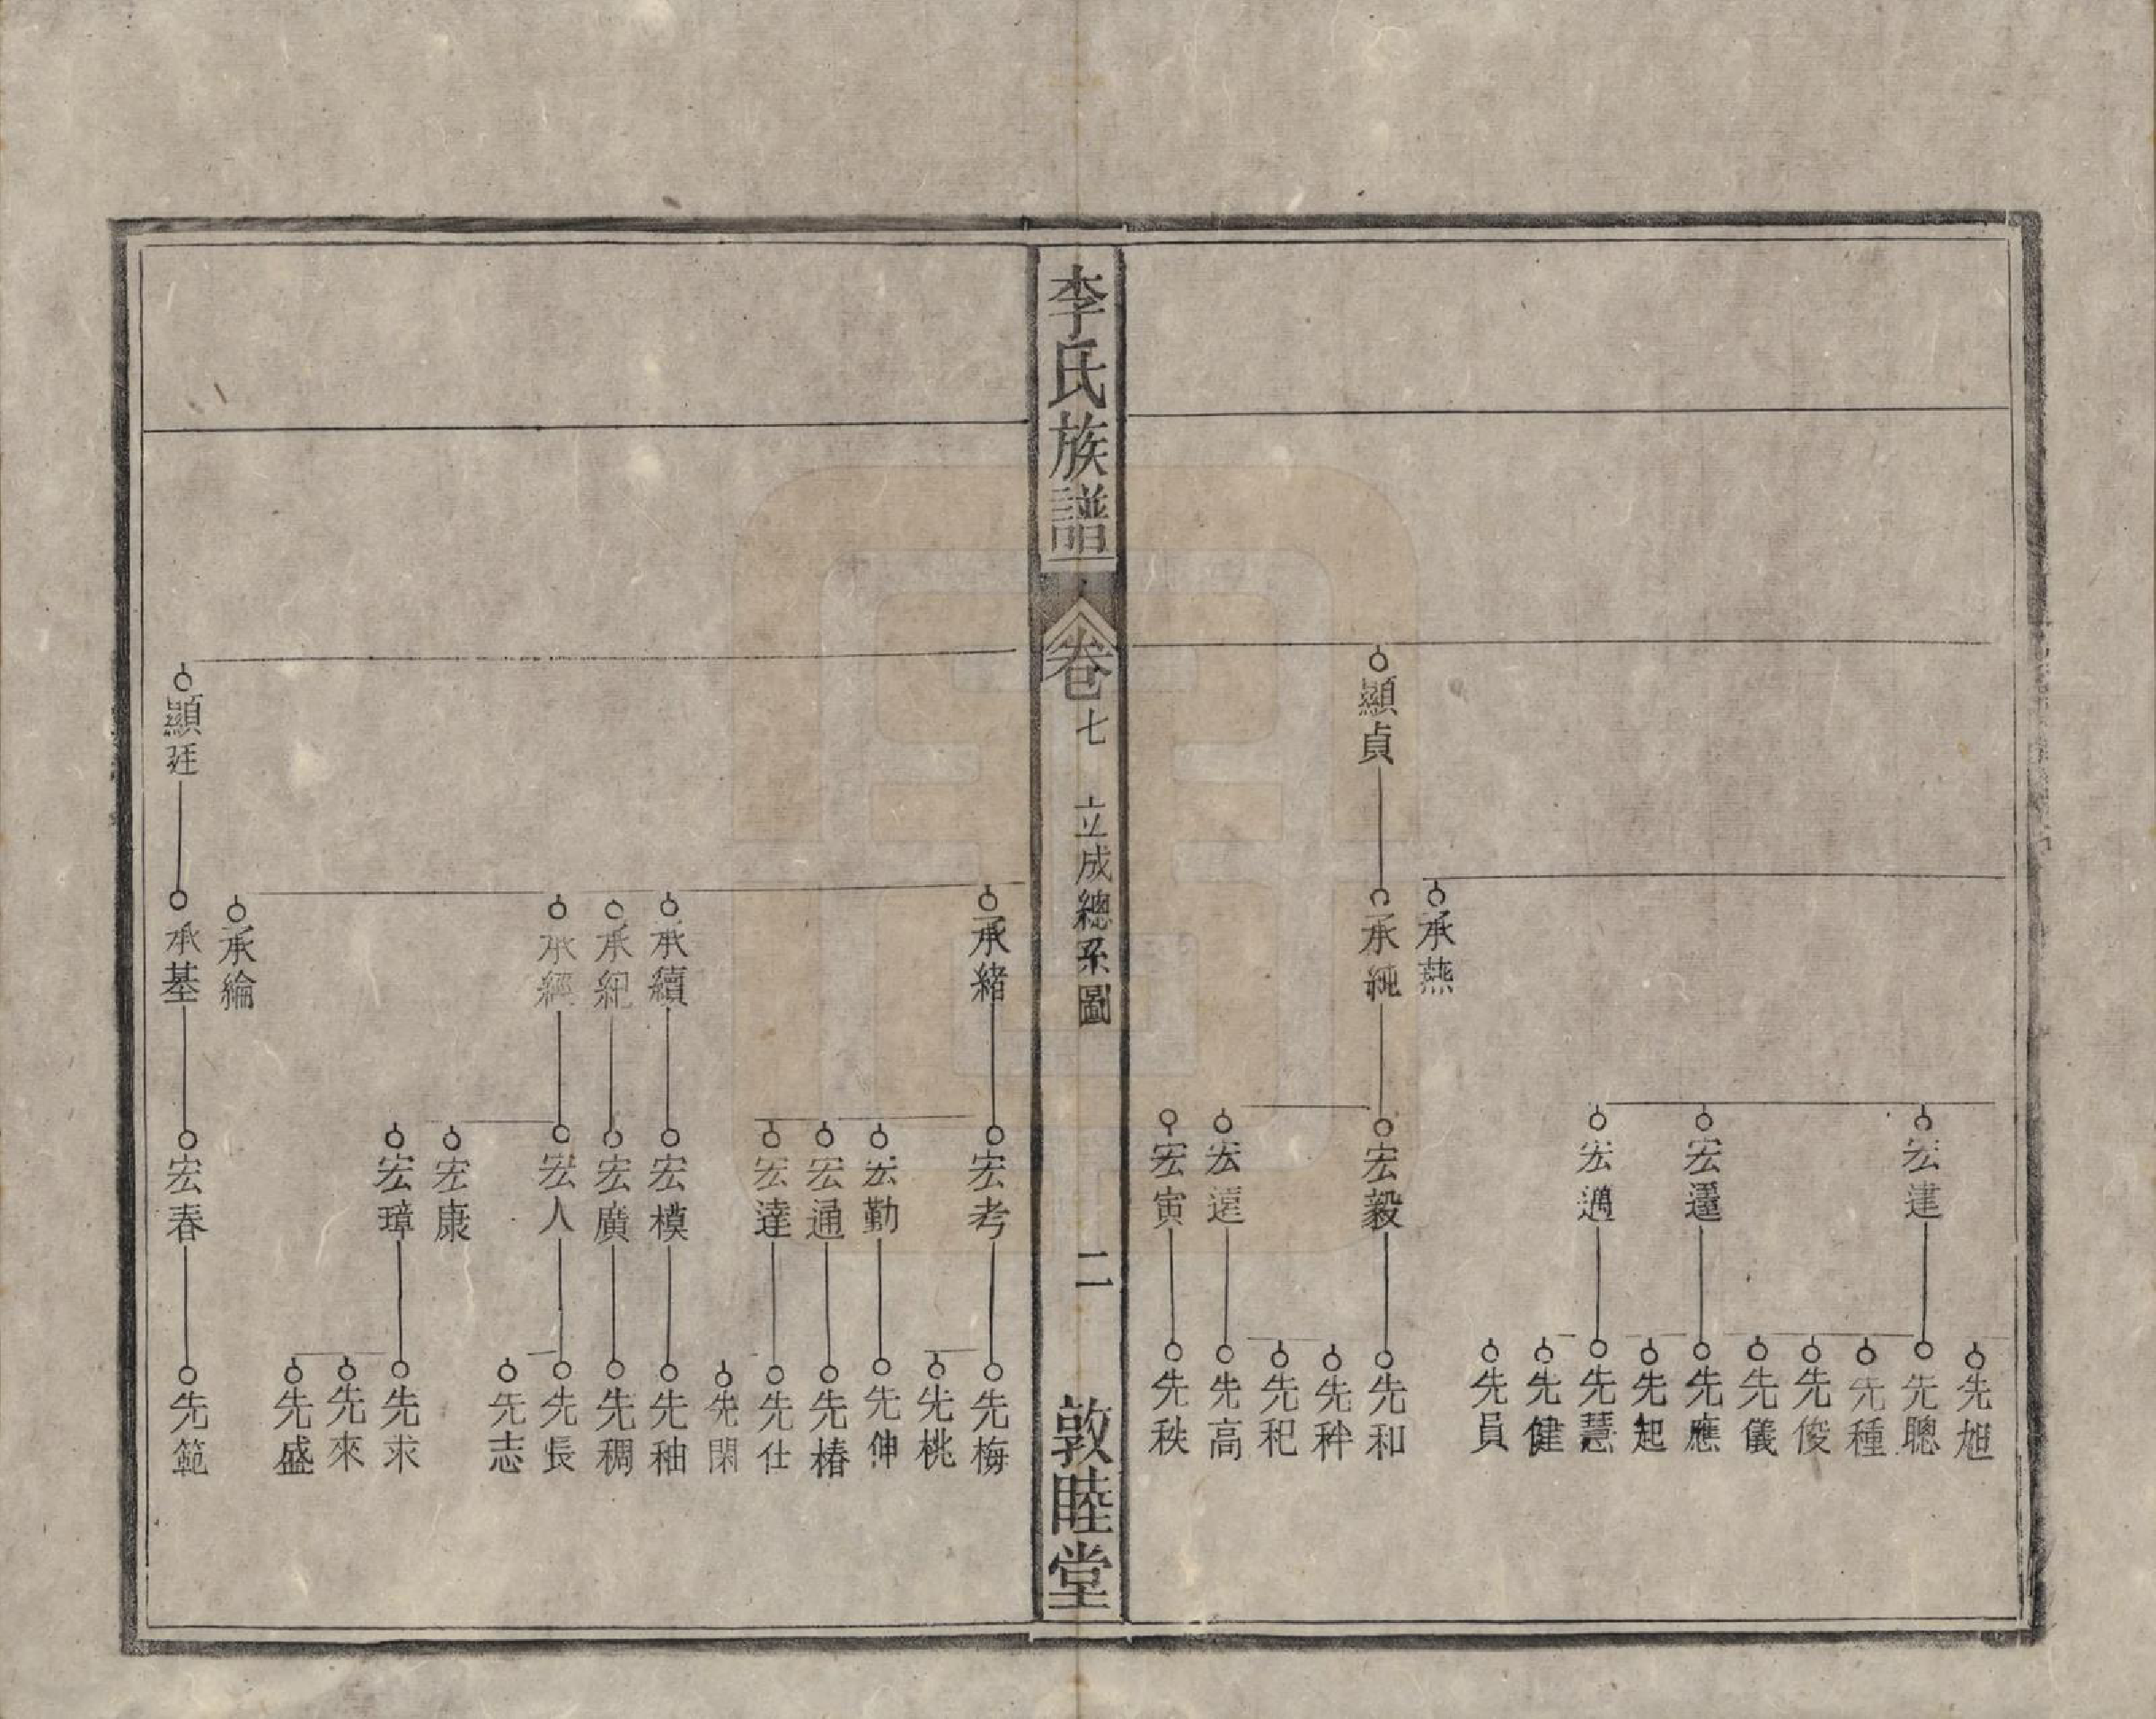 顯貞
承燕
承純
宏建
宏邁
宏毅
宏遠
宏寅
先旭
先聰
先種
先俊
先儀
先應
先起
先慧
先健
先員
先和
先祀
先高
先秩
李氏族譜
卷七
立成總系圖
二
敦睦堂
顯廷
承緒
承續
承紀
承經
承綸
承基
宏考
宏勤
宏通
宏達
宏模
宏廣
宏人
宏康
宏璋
宏春
先梅
先桃
先伸
先椿
先仕
先閑
先秞
先稠
先長
先志
先求
先來
先盛
先範